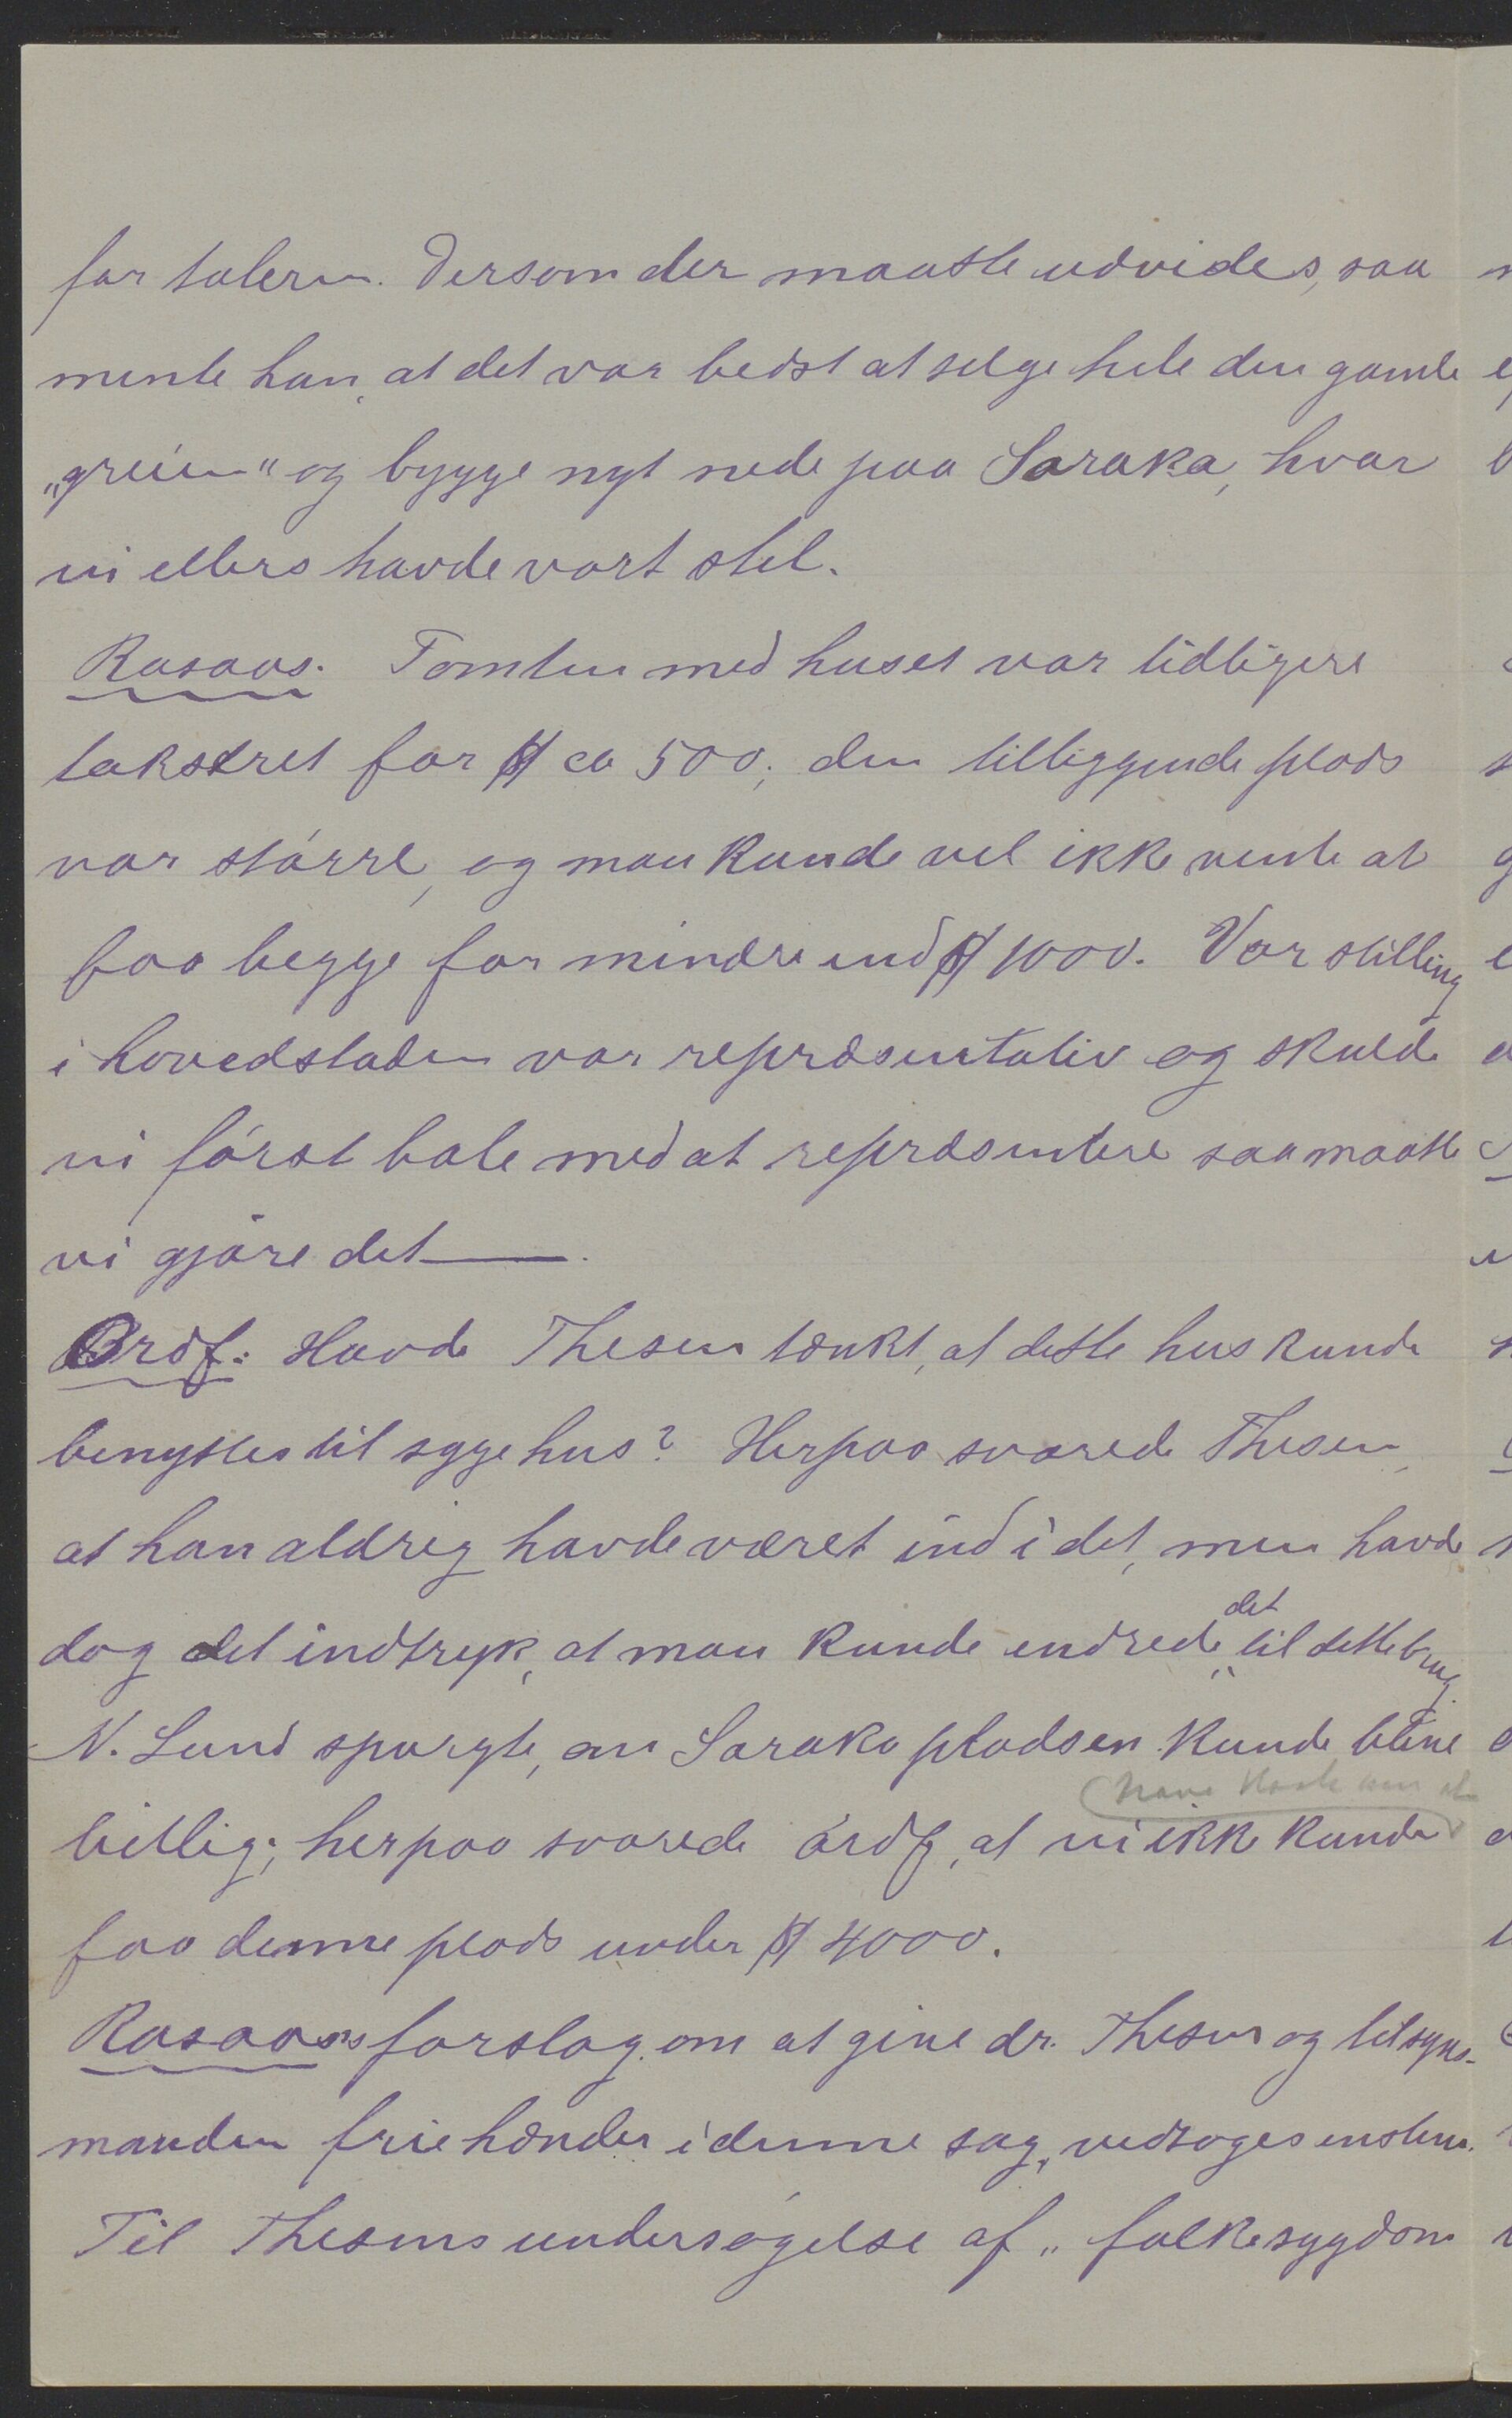 for taleren. Dersom der maatte udvides, saa
mente han, at det var bedst at selge hele den gamle
„greien" og bygge nyt nede paa Saraka, hvor
vi ellers havde vort stel.
Rosaas. Tomten med huset var tidligere
takseret for $ ca 500; den tilliggende plads
var större, og man kunde vel ikke vente at
faa begge for mindre end $ 1000. Vor stilling
i hovedstaden var repræsentativ og skulde
vi först tale med at repræsentere saa maatte
vi gjöre det —.
Ordf: Havde Thesen tænkt, at dette hus kunde
benyttes til sygehus? Herpaa svarede Thesen,
at han aldrig havde været ind i det, men havde
dog det indtryk, at man kunde endrede det til dette brug.
N. Lund spurgte, om Saraka pladsen kunde blive
billig; herpaa svarede ordf, at vi ikke kunde
faa denne plads under $ 4000.
Rosaas's forslag om at give dr. Thesen og tilsyns-
manden frie hænder i denne sag, vedtoges enstem.
Til Thesens undersögelse af „folkesygdom